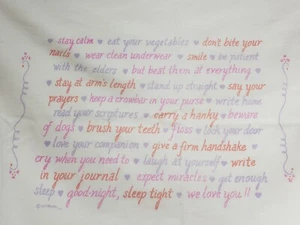 ♥ stay calm ♥ eat your vegetables ♥ don't bite your
nails ♥ wear clean underwear ♥ smile ♥ be patient
with the elders ♥ but beat them at everything
♥ stay at arm's length ♥ stand up straight ♥ say your
prayers ♥ keep a crowbar in your purse ♥ write home
read your scriptures ♥ carry a hanky ♥ beware
of dogs ♥ brush your teeth ♥ floss ♥ lock your door
♥ love your companion ♥ give a firm handshake
cry when you need to ♥ laugh at yourself ♥ write
in your journal ♥ expect miracles ♥ get enough
sleep ♥ good-night, sleep tight ♥ we love you!!